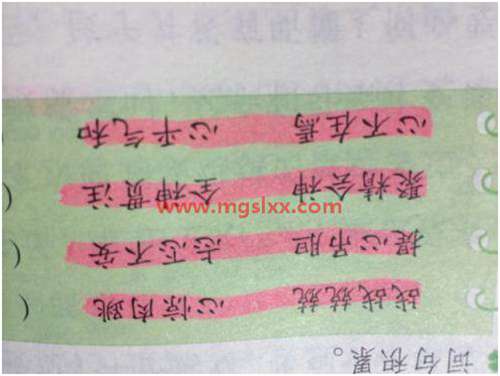 词句积累。
战战兢兢 心惊肉跳
提心吊胆 忐忑不安
聚精会神 全神贯注
心不在焉 心平气和
www.mgslxx.com